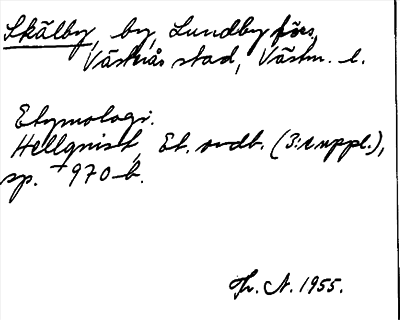 Skälby, by, Lundby förs.,
Västerås stad, Västm. l.
Etymologi.
Hellqvist, Et. ordb. (3:e uppl.),
sp. 970 b.
Th. N. 1955.